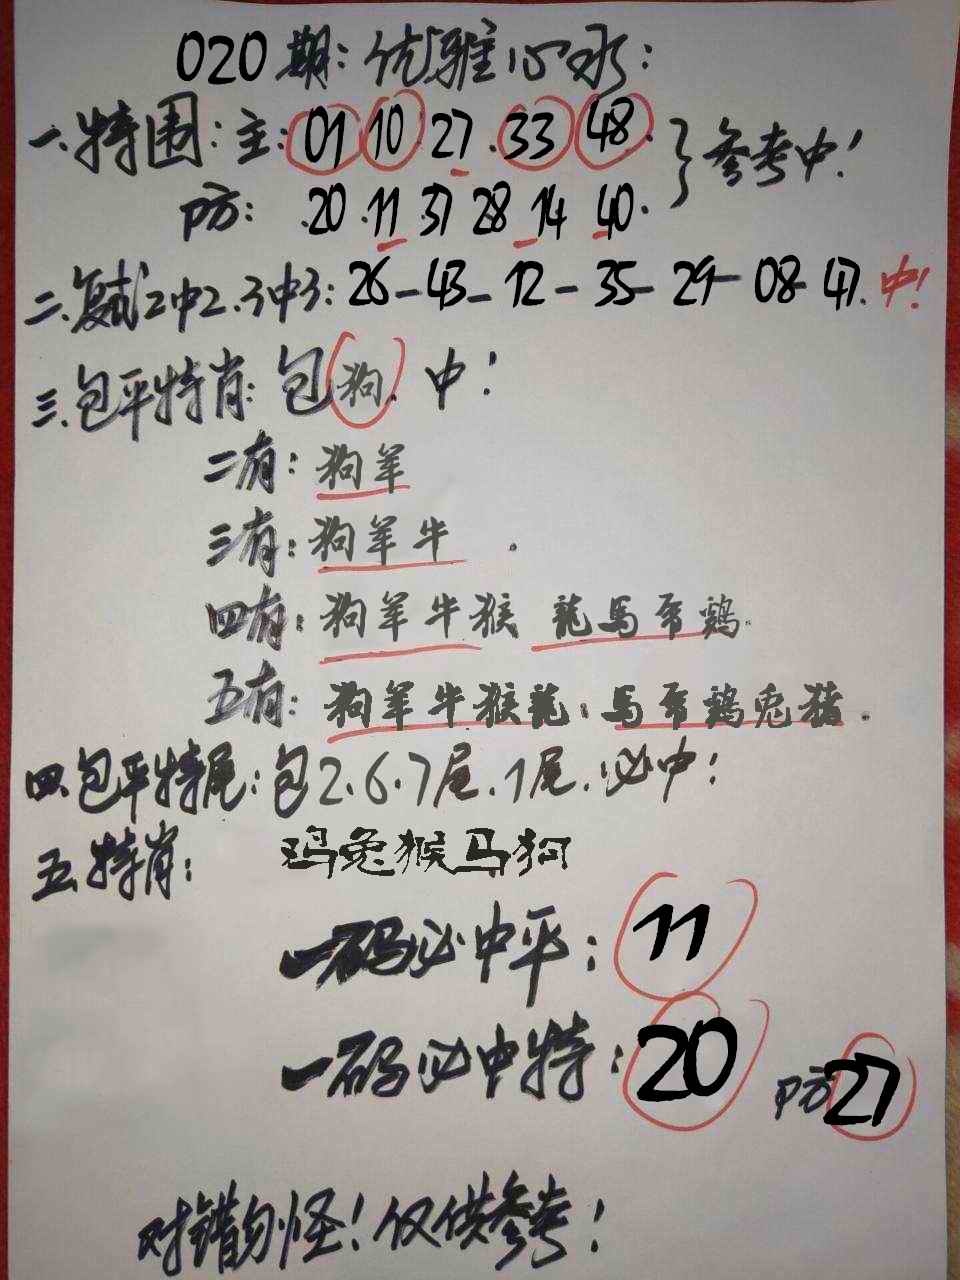 020期:优雅心水:
一.特围:主:01 10 27.33 48.
防: .20.11 37 28 14 40.
}参考中!
二.复式2中2.3中3:26-43-12-35-29-08-47.中!
三.包平特肖:包狗.中!
二有:狗羊
三有:狗羊牛.
四有:狗羊牛猴 龍馬鼠鷄.
五有:狗羊牛猴龍:馬鼠鷄兎豬.
四.包平特尾:包2.6.7尾.1尾.必中!
五.特肖: 鸡兔猴马狗
一码必中平:11
一码必中特:20 防27
对错勿怪!仅供参考!